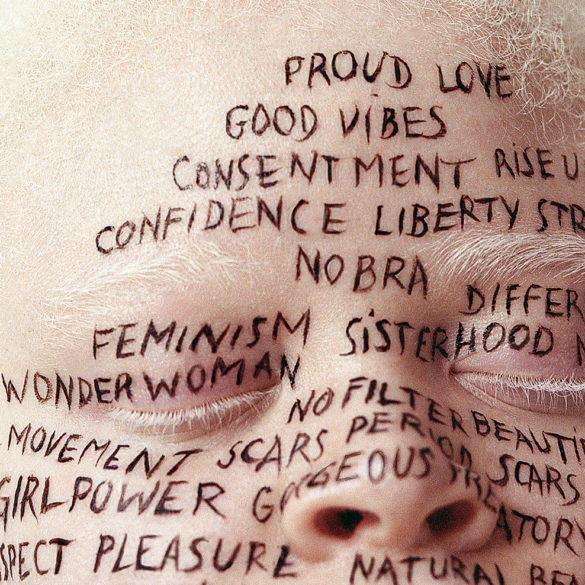 PROUD LOVE
GOOD VIBES
CONSENTMENT RISE U
CONFIDENCE LIBERTY STR
NO BRA
DIFFER
FEMINISM SISTERHOOD
WONDER WOMAN
NO FILTER BEAUTI
MOVEMENT SCARS PERIOD SCARS
GIRL POWER GORGEOUS
ATOR
SPECT PLEASURE NATURAL